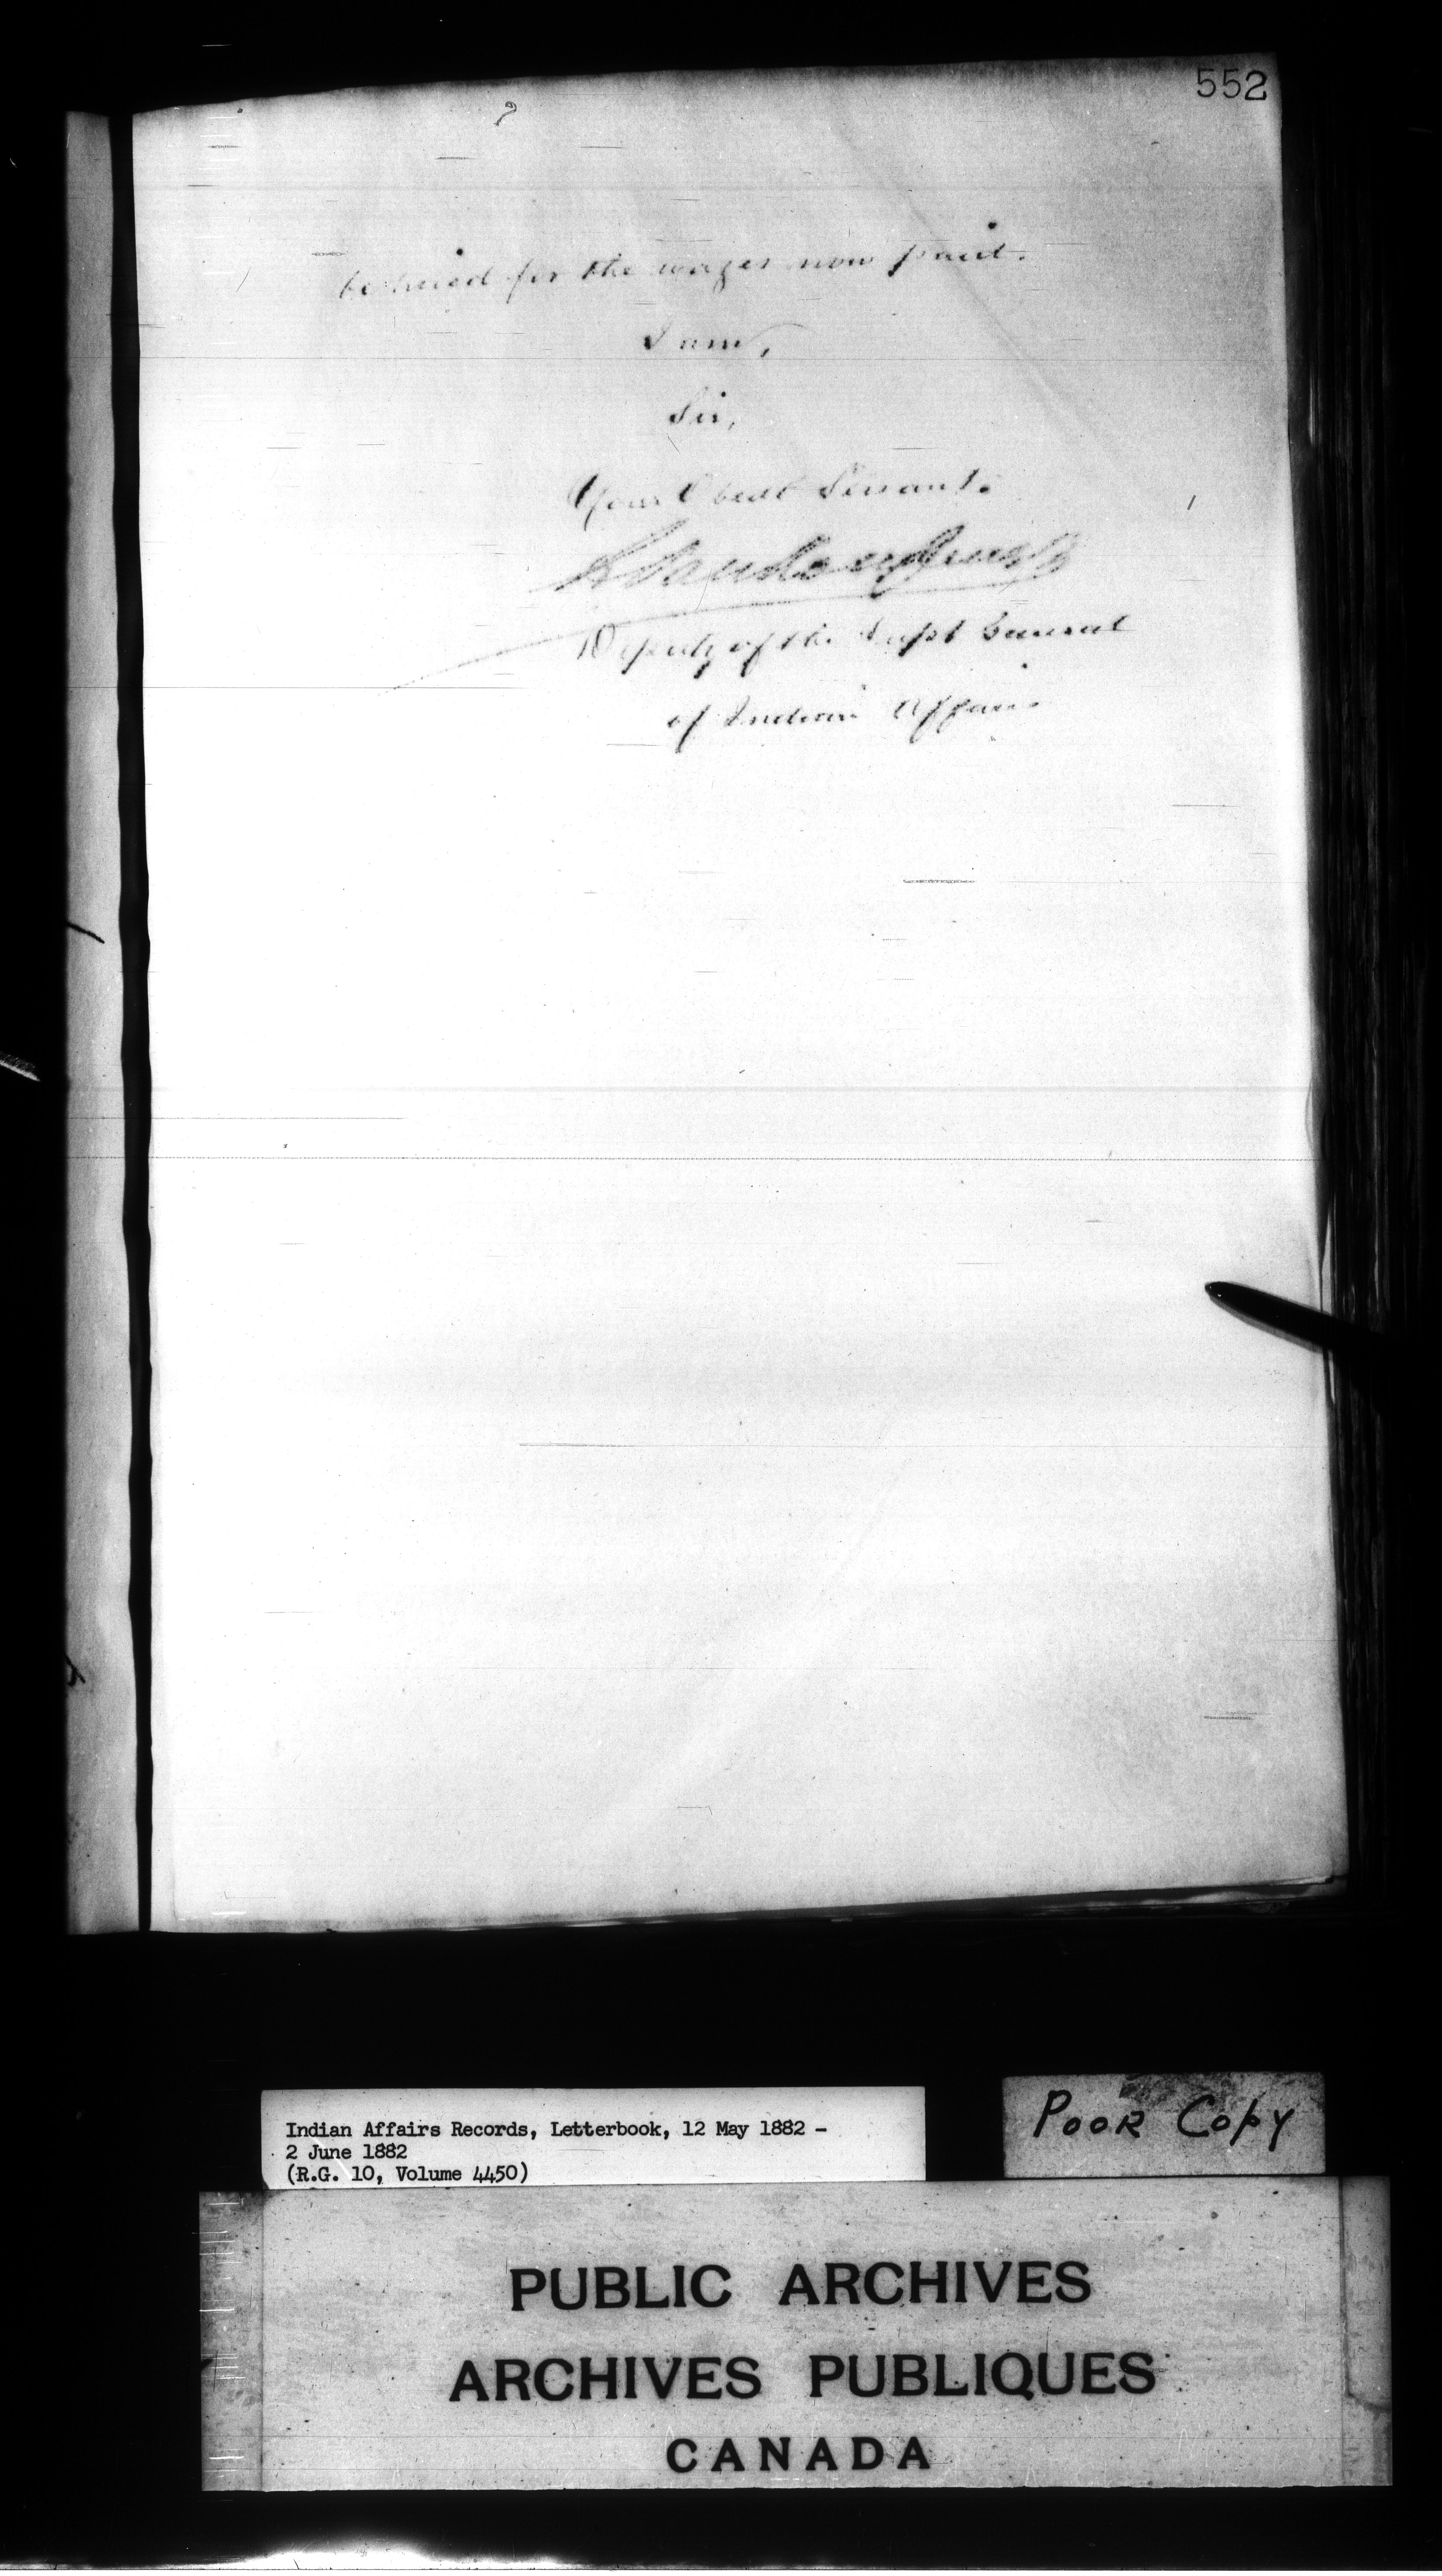 552
2
be hired for the wages now paid.
I am,
Sir,
Your Obedt Servant.
L Vankoughnet
Deputy of the Supt General
of Indian Affairs
Indian Affairs Records, Letterbook, 12 May 1882 -
2 June 1882
(R.G. 10, Volume 4450)
POOR COPY
PUBLIC ARCHIVES
ARCHIVES PUBLIQUES
CANADA